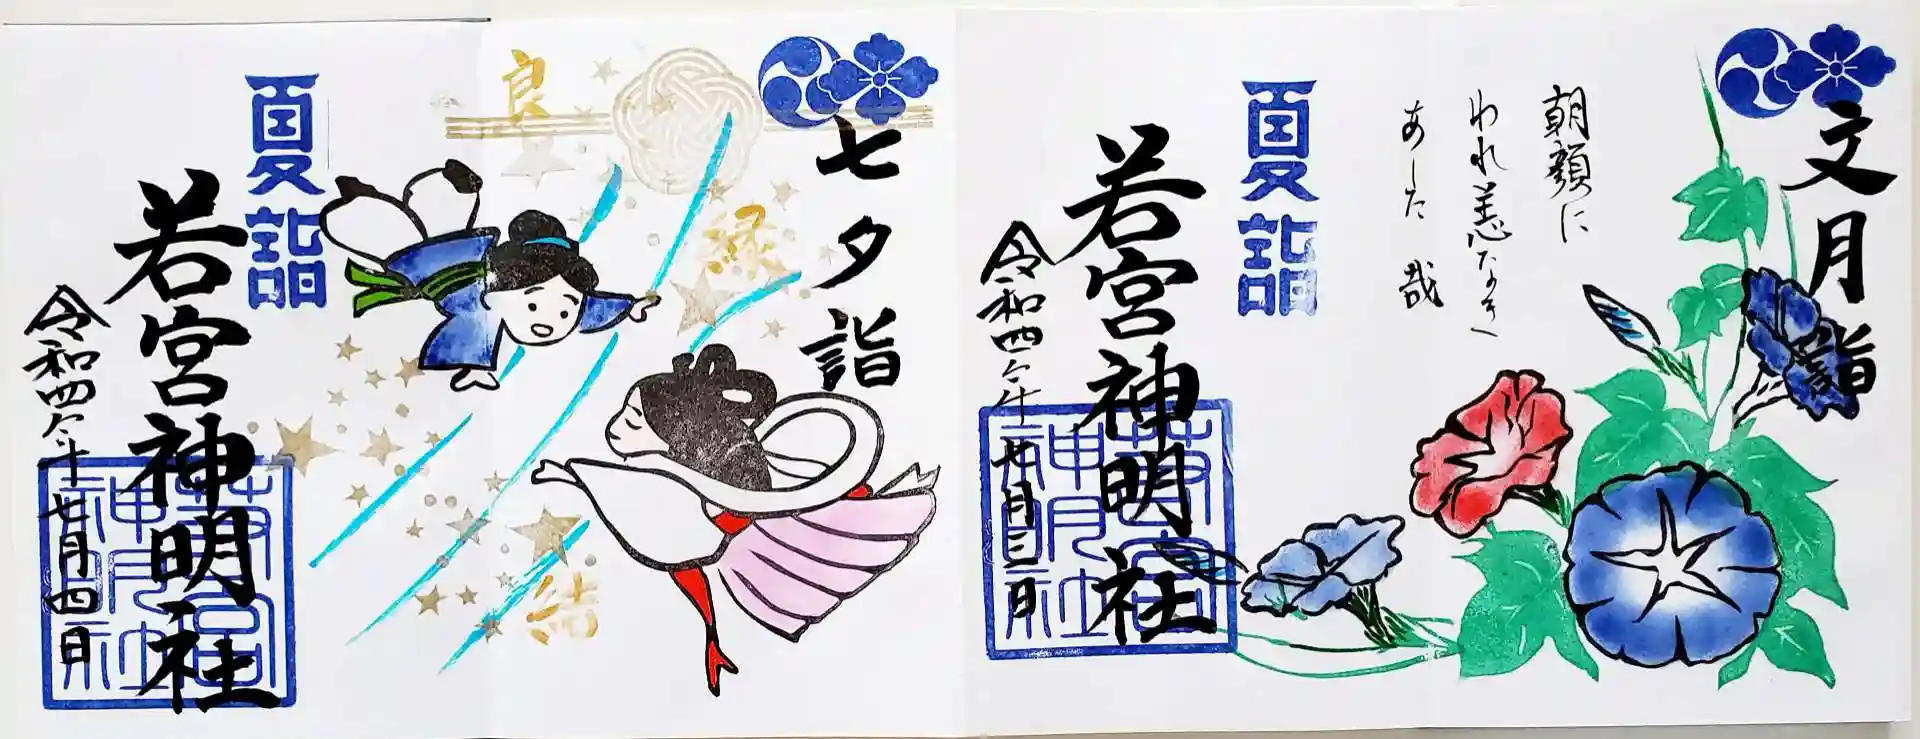 文月詣
朝顔に
われ恙なき
あした哉
夏詣
若宮神明社
令和四年七月三日
若宮神明社
七夕詣
良
縁
結
夏詣
若宮神明社
令和四年七月四日
若宮神明社